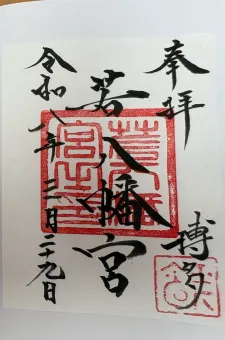 奉拝
博多
若八幡宮
令和八年三月二十九日